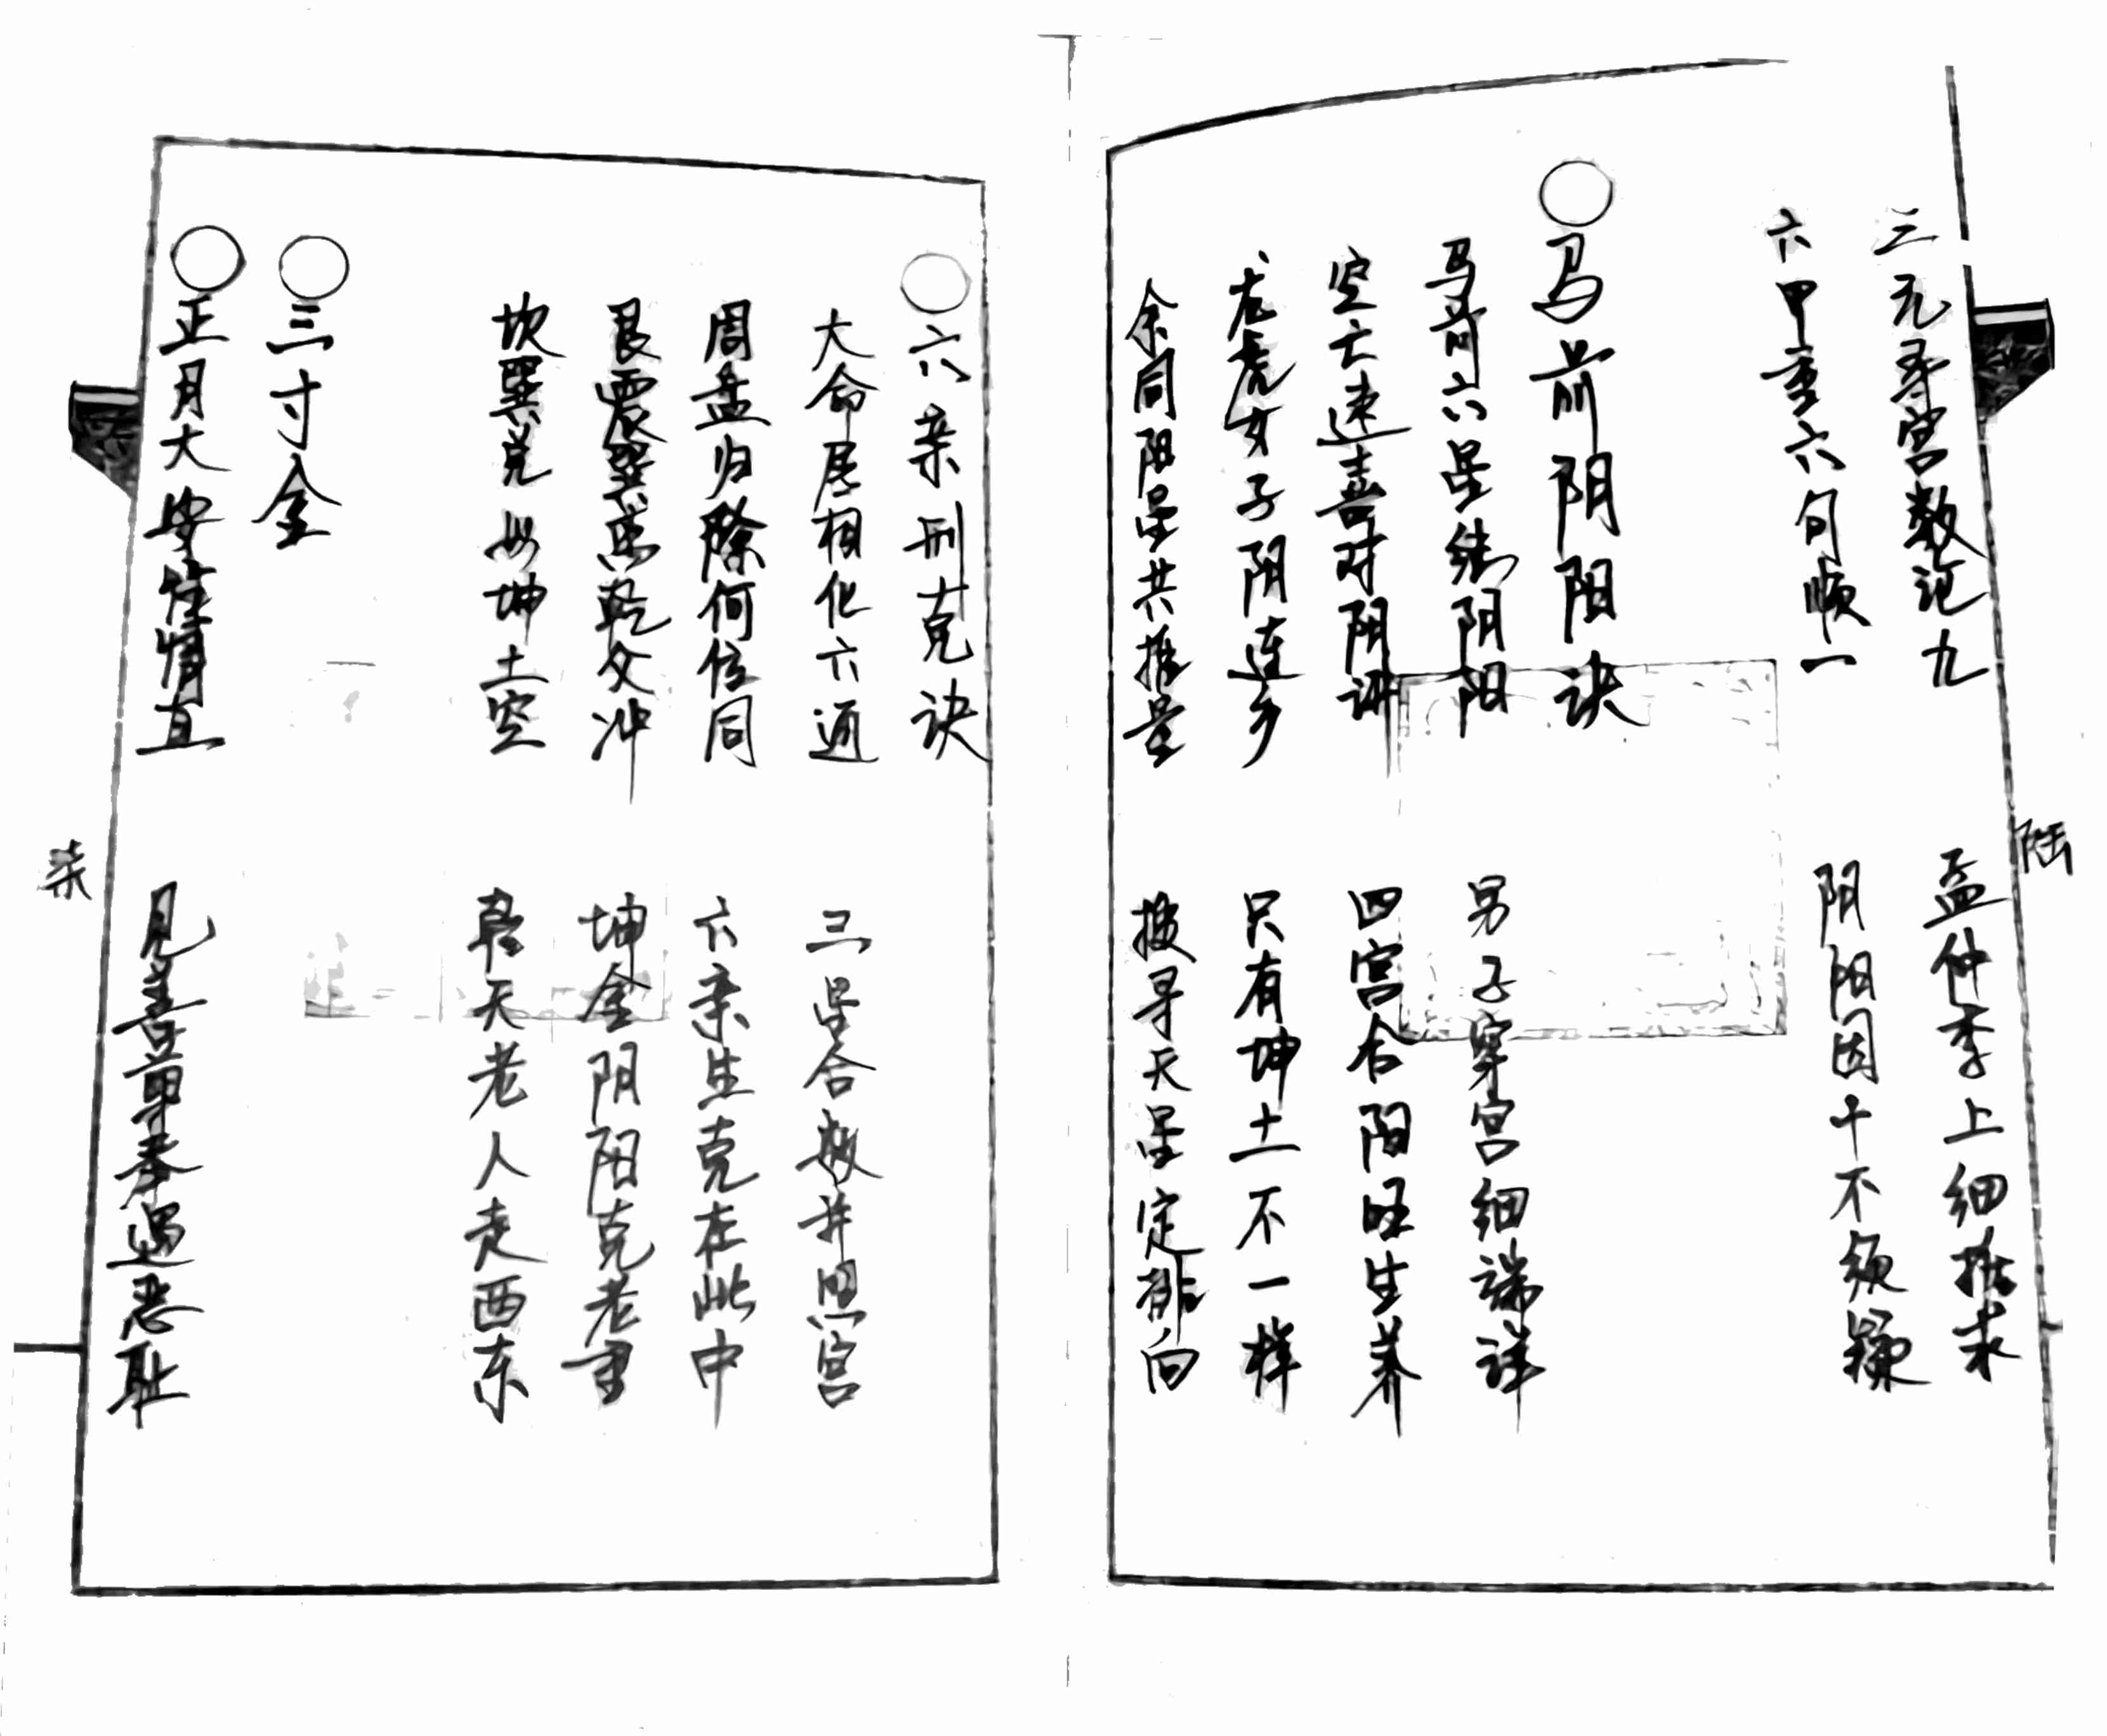 三元寻宫数论九 孟仲季上细推求
六甲重六句顺一 阴阳因十不须
陆
○马前阴阳诀
马前六星续阴阳 另子穿宫细端详
空亡速喜时阴 四宫合阳旺生养
龙虎女子阴连乡 只有坤土不一样
余同阳星共推量 按寻天星定排向
○六亲刑克诀
大命居相化六通 三星合数并照宫
周盘归除何位同 六亲生克在此中
艮震巽离乾父冲 坤金阴阳克老重
坎巽兑 坤土空 乾天老人走西东
○三寸金
○正月大安性情直 见善单奉遇恶耻
柒